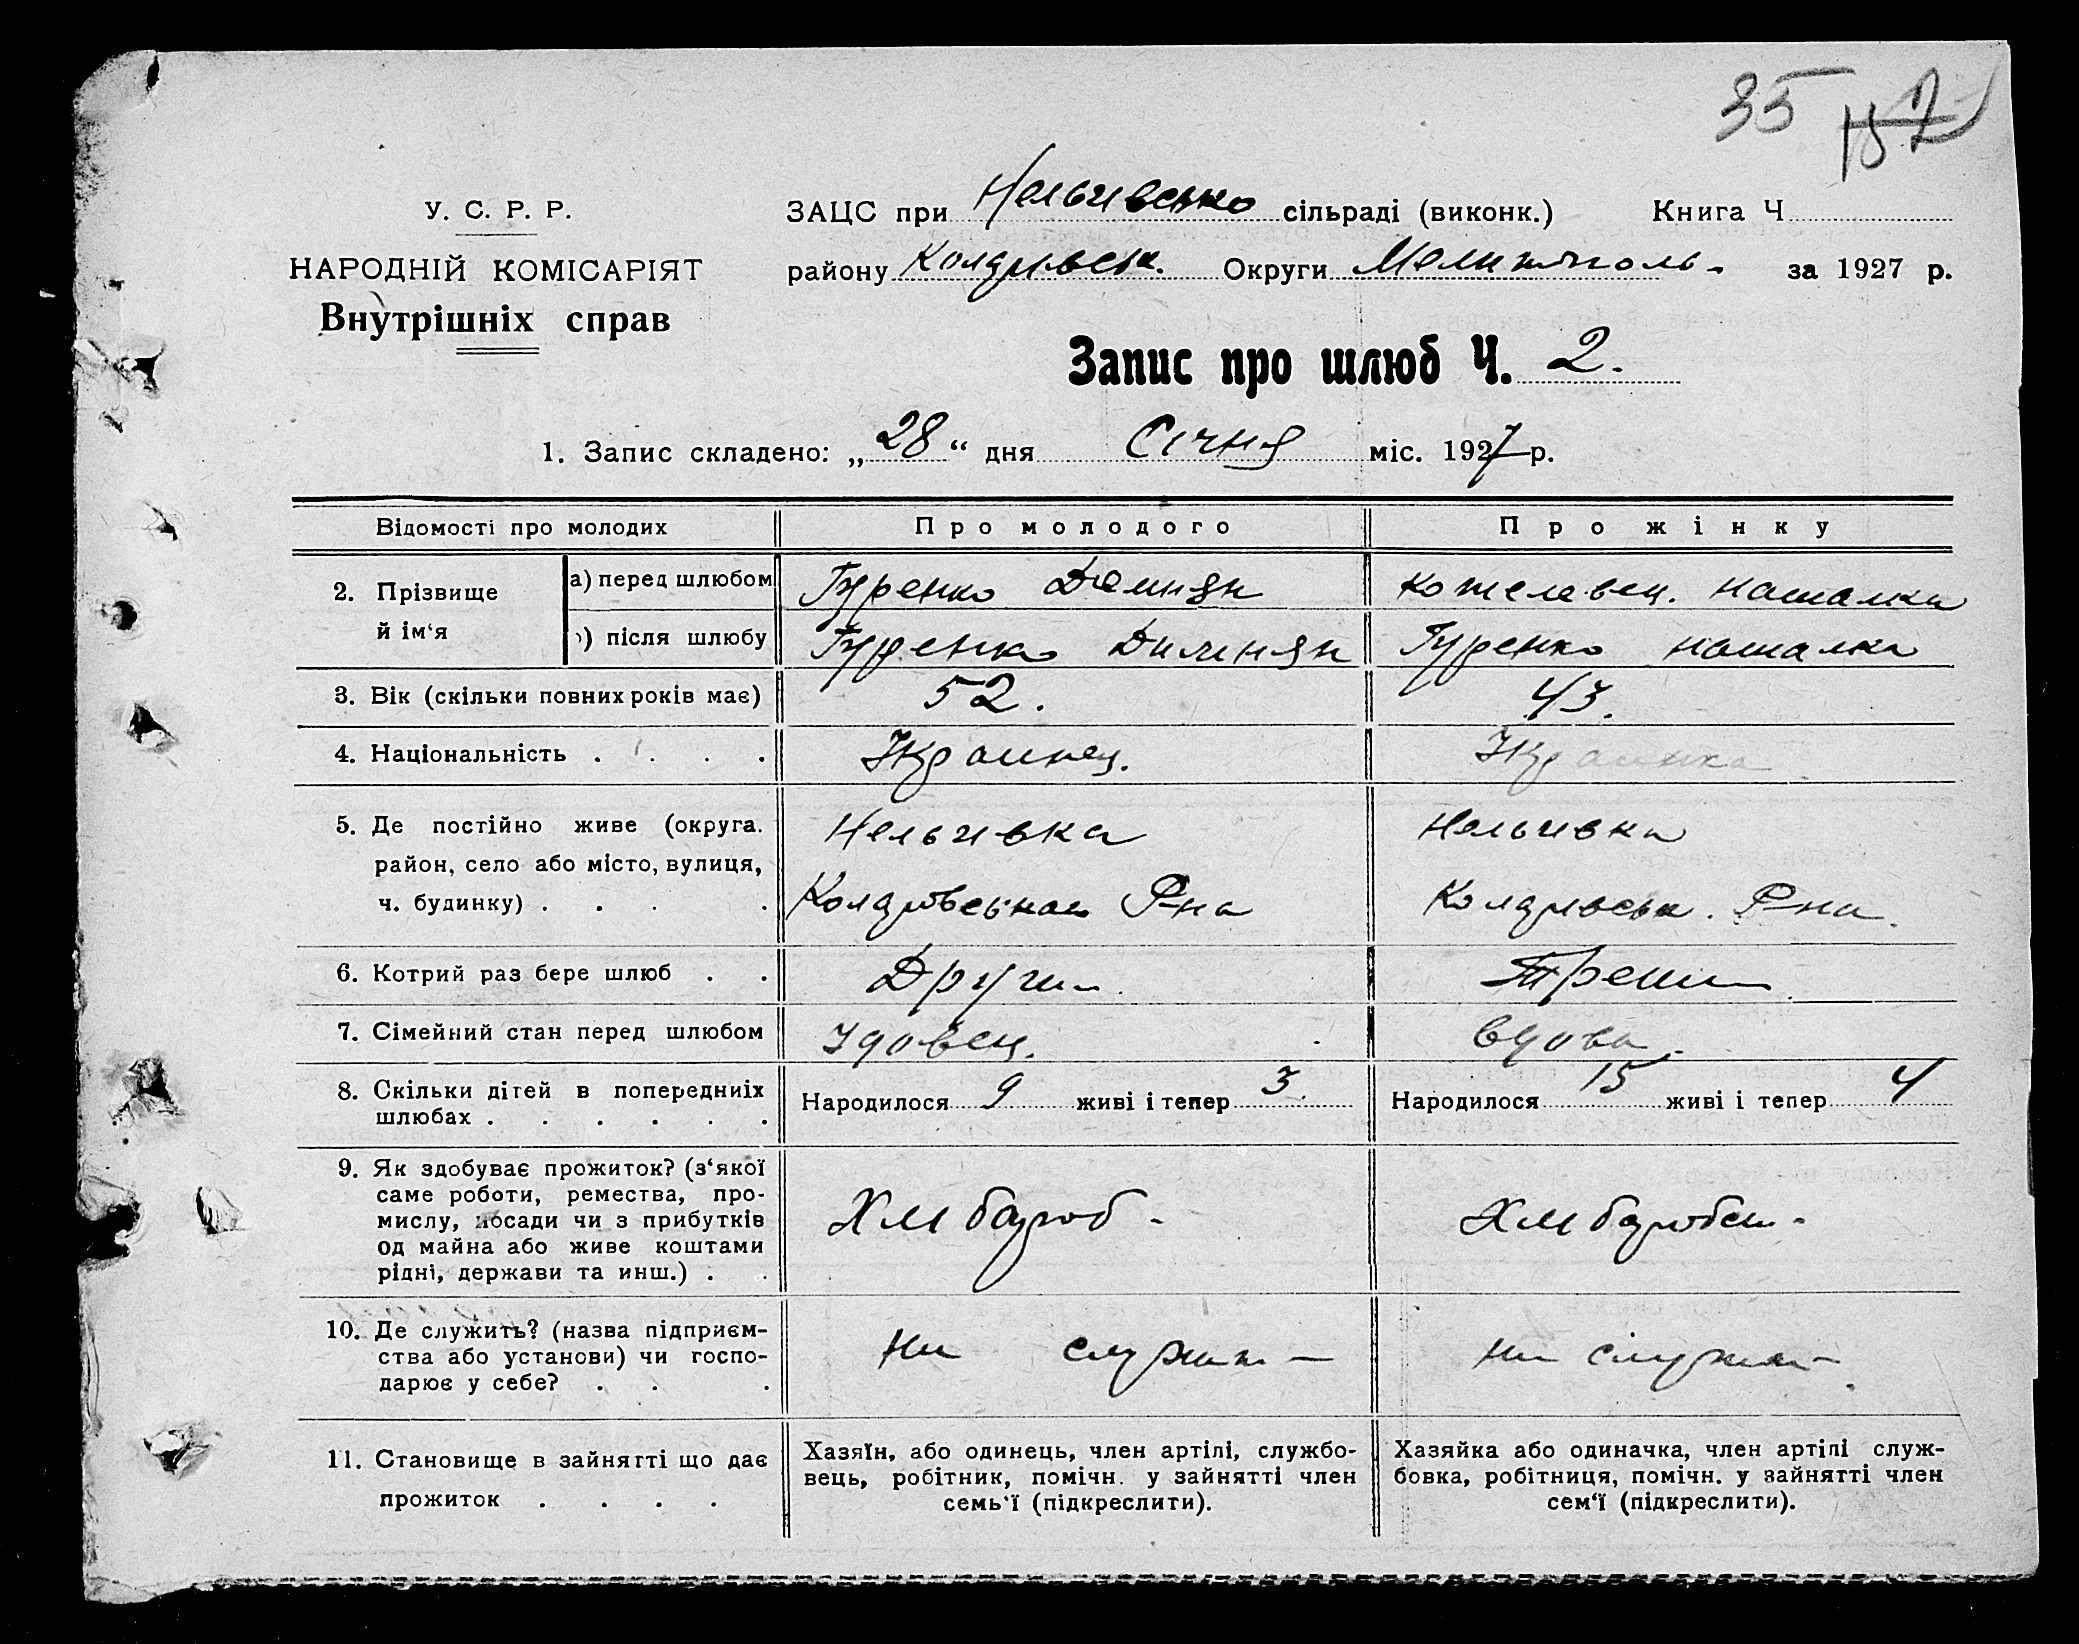 35 157
У. С. Р. Р.
НАРОДНІЙ КОМІСАРІЯТ
Внутрішніх справ
ЗАЦС при Нельгивсько сільраді (виконк.) Книга Ч
району Колдривськ. Округи Мелитополь- за 1927 р.
Запис про шлюб Ч. 2.
1. Запис складено: „28“ дня Січня міс. 1927 р.
Відомості про молодих Про молодого Про жінку
2. Прізвище й ім‘я
а) перед шлюбом Гуренко Демиян Котелевец. Наталка
) після шлюбу Гуренко Димиян Гуренко Наталка
3. Вік (скільки повних років має) 52. 43.
4. Національність . . . . Украинец. Украинка
5. Де постійно живе (округа. Нельгивка Нельгивка
район, село або місто, вулиця,
ч. будинку) . . . . Р-на Колдривськ. Р-на.
6. Котрий раз бере шлюб . . Други Трети
7. Сімейний стан перед шлюбом Удовец. Вдова.
8. Скільки дітей в попередниіх Народилося 9 живі і тепер 3. Народилося 15 живі і тепер 4
шлюбах . . . . . .
9. Як здобуває прожиток? (з‘якої
саме роботи, ремества, про-
мислу, посади чи з прибутків Хлибороб- Хлибороб
од майна або живе коштами
рідні, держави та инш.) . .
10. Де служить? (назва підприєм-
ства або установи) чи госпо- Ни служит- Ни служит-
дарює у себе? . . .
11. Становище в зайнятті що дає
прожиток . . . .
Хазяїн, або одинець, член артілі, службо-
вець, робітник, помічн. у зайнятті член
семь‘ї (підкреслити).
Хазяйка або одиначка, член артілі служ-
бовка, робітниця, помічн. у зайнятті член
сем‘ї (підкреслити).